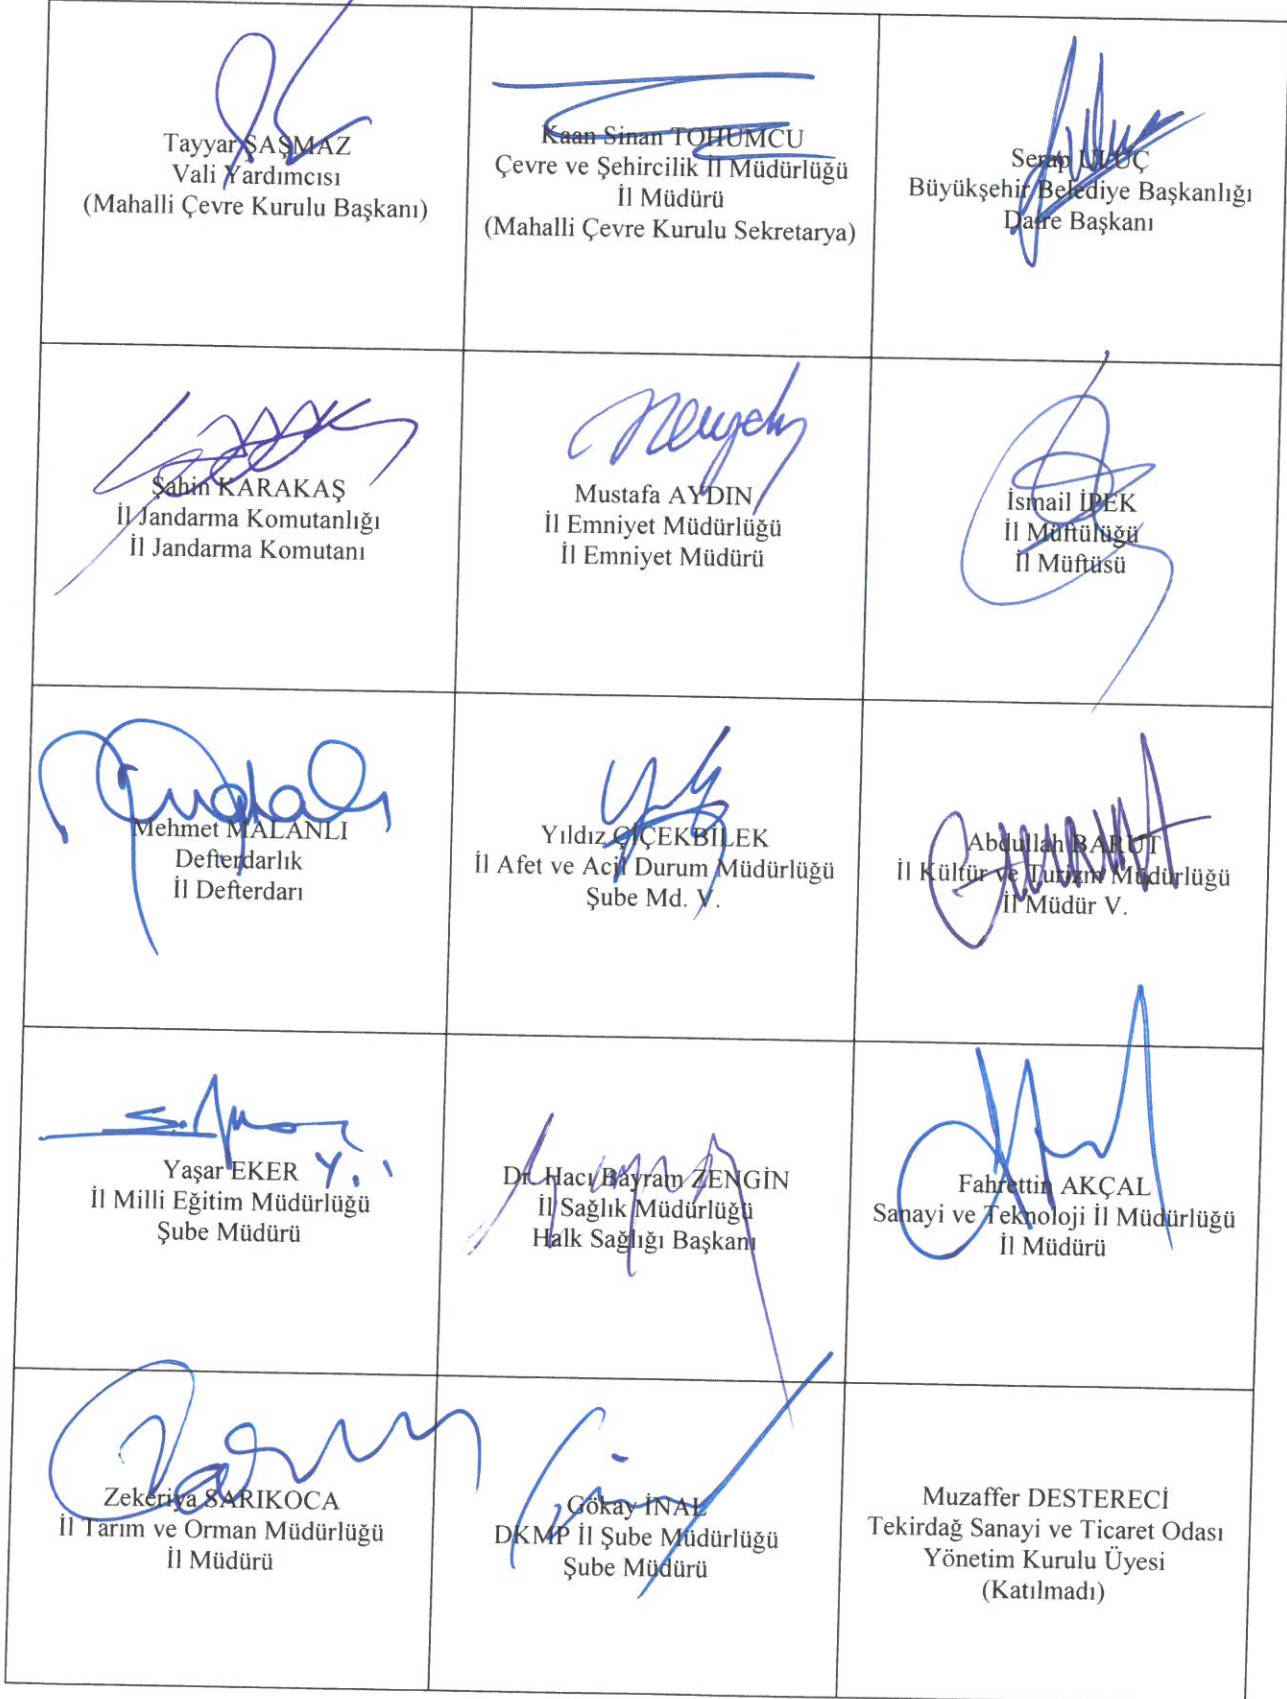 Tayyar ŞAŞMAZ
Vali Yardımcısı
(Mahalli Çevre Kurulu Başkanı)
Kaan Sinan TOHUMCU
Çevre ve Şehircilik İl Müdürlüğü
İl Müdürü
(Mahalli Çevre Kurulu Sekretarya)
Serap ULUÇ
Büyükşehir Belediye Başkanlığı
Daire Başkanı
Şahin KARAKAŞ
İl Jandarma Komutanlığı
İl Jandarma Komutanı
Mustafa AYDIN
İl Emniyet Müdürlüğü
İl Emniyet Müdürü
İsmail İPEK
İl Müftülüğü
İl Müftüsü
Mehmet MALANLI
Defterdarlık
İl Defterdarı
Yıldız ÇİÇEKBİLEK
İl Afet ve Acil Durum Müdürlüğü
Şube Md. V.
Abdullah BARUT
İl Kültür ve Turizm Müdürlüğü
İl Müdür V.
Yaşar EKER
İl Milli Eğitim Müdürlüğü
Şube Müdürü
Dr. Hacı Bayram ZENGİN
İl Sağlık Müdürlüğü
Halk Sağlığı Başkanı
Fahrettin AKÇAL
Sanayi ve Teknoloji İl Müdürlüğü
İl Müdürü
Zekeriya SARIKOCA
İl Tarım ve Orman Müdürlüğü
İl Müdürü
Gökay İNAL
DKMP İl Şube Müdürlüğü
Şube Müdürü
Muzaffer DESTERECİ
Tekirdağ Sanayi ve Ticaret Odası
Yönetim Kurulu Üyesi
(Katılmadı)